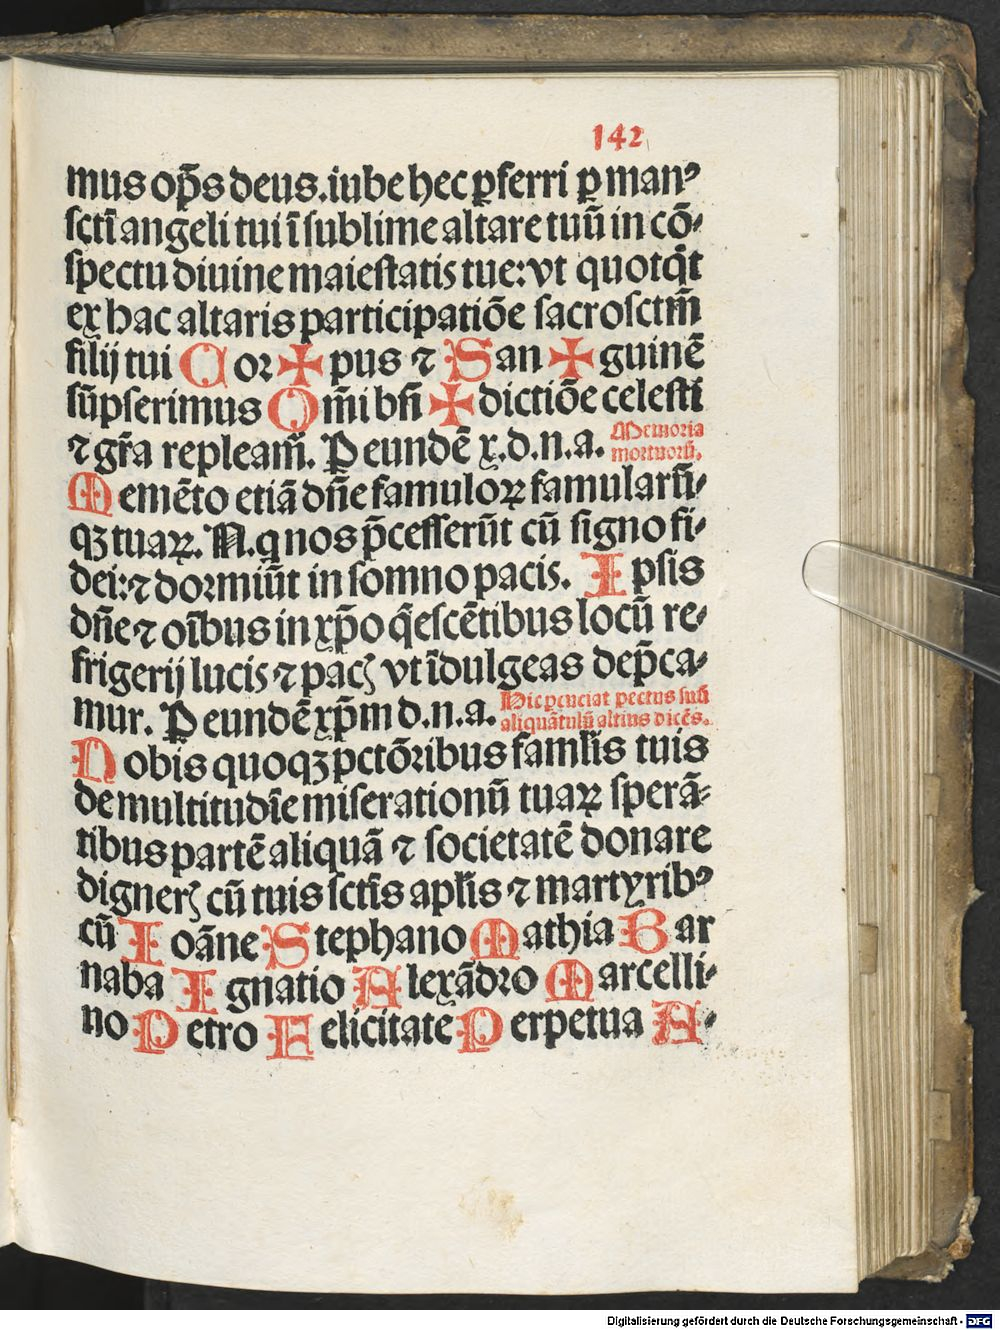 142
mus op̄s deus. iube hec ꝑferri ꝑ manꝰ
sctī angeli tui ī sublime altare tuū in cō⸗
spectu diuine maiestatis tue: vt quotq̄t
ex hac altaris participatiōe sacrosctm̄
filij tui Cor ✠ pus ⁊ San ✠ guinē
sūpserimus Om̄i bn̄ ✠ dictiōe celesti
⁊ gr̄a repleam̄. Ꝑ eundē x̄.d.n.a. Memoria
mortuorū.
Memēto etiā dn̄e famuloꝝ famularū⸗
qꝫ tuaꝝ. N. q nos p̄cesserūt cū signo fi⸗
dei: ⁊ dormiūt in somno pacis. Ipsis
dn̄e ⁊ oībus in xp̄o q̄escētibus locū re⸗
frigerij lucis ⁊ pacꝭ vt īdulgeas dep̄ca⸗
mur. Ꝑ eundē xp̄m d.n.a. Hic percutiat pectus suū
aliquātulū altius dicēs.
Nobis quoqꝫ pctōribus famlis tuis
de multitudīe miserationū tuaꝝ sperā⸗
tibus partē aliquā ⁊ societatē donare
dignerꝭ cū tuis sctīs aplis ⁊ martyribꝰ
cū Ioāne Stephano Mathia Bar
naba Ignatio Alexādro Marcelli⸗
no Petro Felicitate Perpetua A⸗
Digitalisierung gefördert durch die Deutsche Forschungsgemeinschaft - DFG